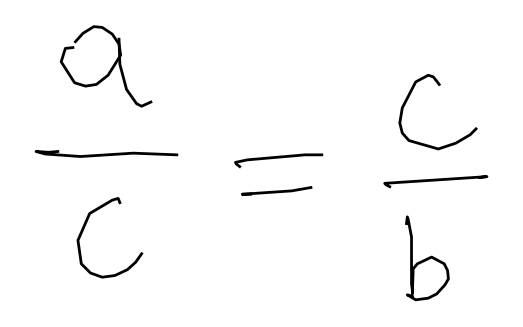 a/c = c/b